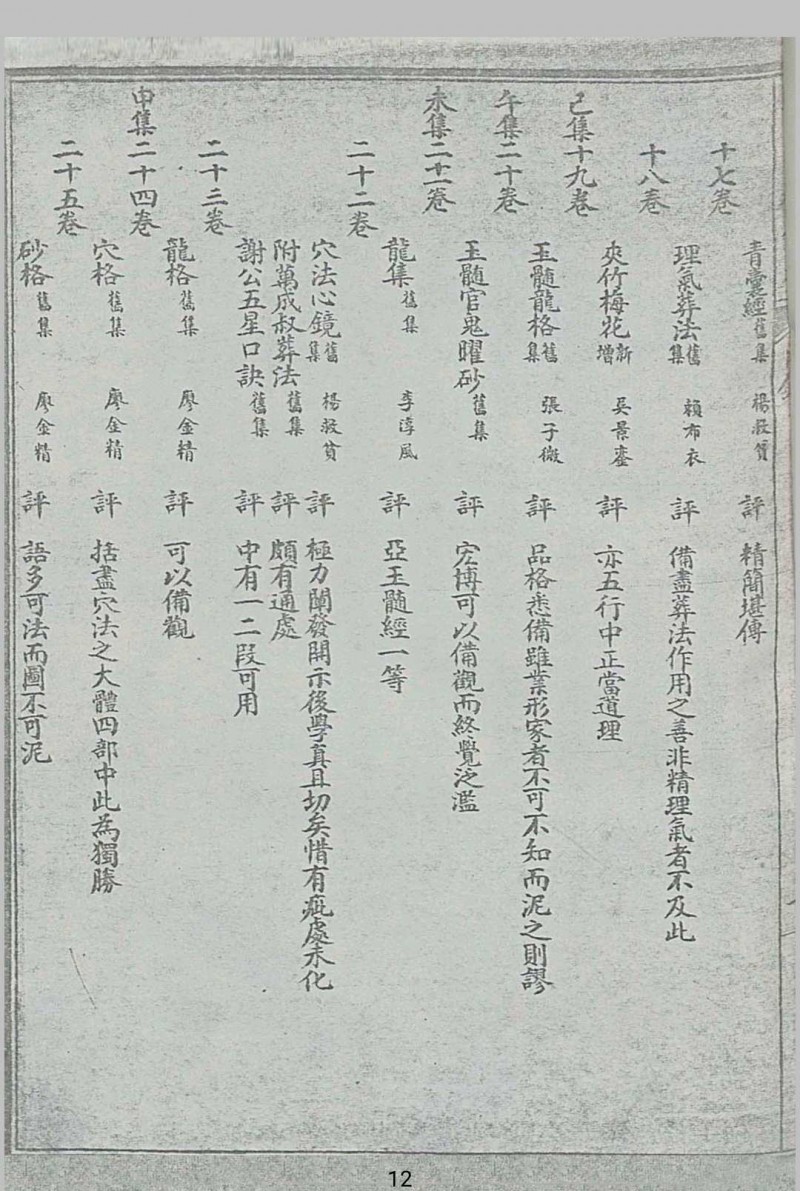 十七卷
青囊經 舊集 楊救貧 評 精簡堪傳
十八卷
理氣葬法 舊集 賴布衣 評 備盡葬法作用之善非精理氣者不及此
己集十九卷
夾竹梅花 新增 吳景鸞 評 亦五行中正當道理
午集二十卷
玉髓龍格 舊集 張子微 評 品格悉備雖業形家者不可不知而泥之則謬
未集二十一卷
玉髓官鬼曜砂 舊集 評 宏博可以備觀而終覺泛濫
龍集 舊集 李淳風 評 亞玉髓經一等
二十二卷
穴法心鏡 舊集 楊救貧 評 極力闡發開示後學真且切矣惜有疵處未化
附萬成叔葬法 舊集 評 頗有通處
謝公五星口訣 舊集 評 中有一二段可用
二十三卷
龍格 舊集 廖金精 評 可以備觀
申集二十四卷
穴格 舊集 廖金精 評 括盡穴法之大體四部中此為獨勝
二十五卷
砂格 舊集 廖金精 評 語多可法而圖不可泥
12